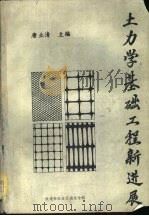 唐业清 主编
土力学基础工程新进展